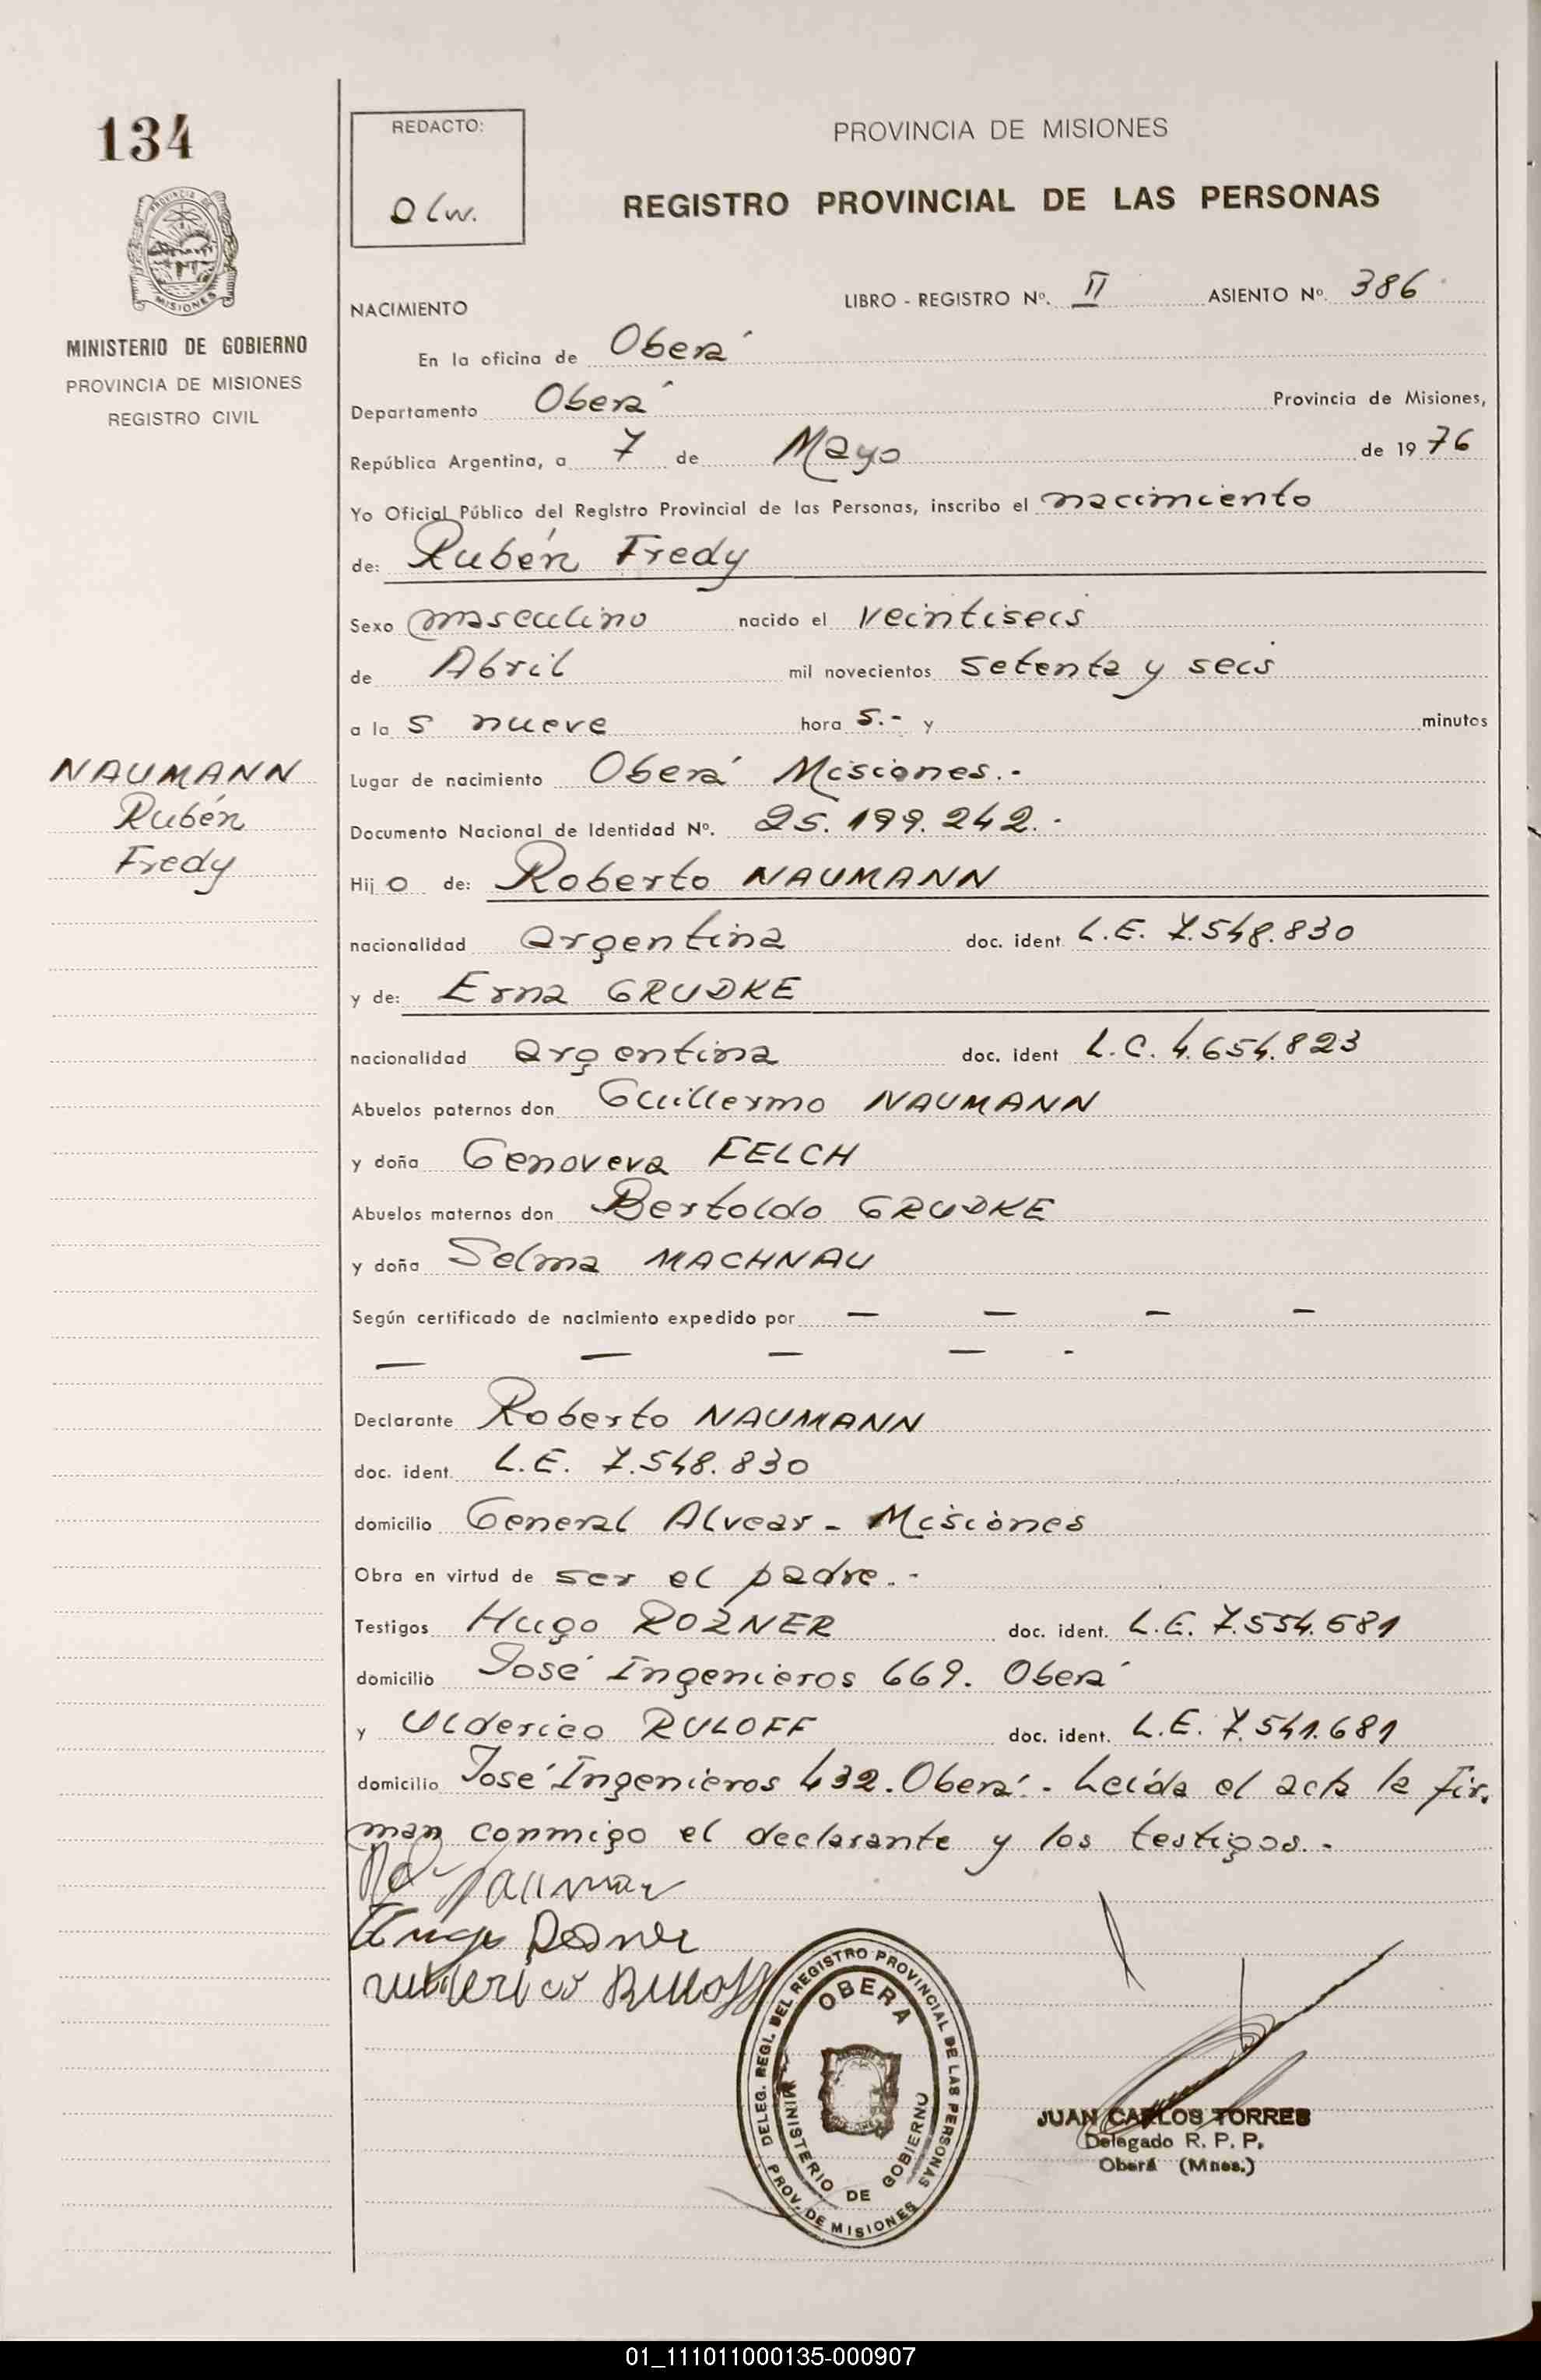 134
REDACTO:
Olw.
PROVINCIA DE MISIONES
REGISTRO PROVINCIAL DE LAS PERSONAS
MISIONES
MINISTERIO DE GOBIERNO
PROVINCIA DE MISIONES
REGISTRO CIVIL
NACIMIENTO
LIBRO - REGISTRO Nº. II ASIENTO Nº. 386
En la oficina de Oberá
Departamento Oberá Provincia de Misiones,
República Argentina, a 7 de Mayo de 1976
Yo Oficial Público del Registro Provincial de las Personas, inscribo el nacimiento
de: Rubén Fredy
Sexo masculino nacido el veintiseis
de Abril mil novecientos setenta y seis
a la s nueve hora s.- y minutos
NAUMANN
Rubén
Fredy
Lugar de nacimiento Oberá Misiones.-
Documento Nacional de Identidad Nº. 25.199.242.-
Hijo de: Roberto NAUMANN
nacionalidad argentina doc. ident. L.E. 7.548.830
y de: Erna GRUDKE
nacionalidad argentina doc. ident L.C. 4.654.823
Abuelos paternos don Guillermo NAUMANN
y doña Genoveva FELCH
Abuelos maternos don Bertoldo GRUDKE
y doña Selma MACHNAU
Según certificado de nacimiento expedido por — — — —
— — — — -
Declarante Roberto NAUMANN
doc. ident. L.E. 7.548.830
domicilio General Alvear - Misiones
Obra en virtud de ser el padre.-
Testigos Hugo ROZNER doc. ident. L.E. 7.554.681
domicilio José Ingenieros 669. Oberá
y Ulderico RULOFF doc. ident. L.E. 7.541.681
domicilio José Ingenieros 432. Oberá.- Leída el acta la fir.
man conmigo el declarante y los testigos.-
Hugo Rozner
Ulderico Ruloff
DELEG. REGI. DEL REGISTRO PROVINCIAL DE LAS PERSONAS
OBERA
MINISTERIO DE GOBIERNO
PROV. DE MISIONES
JUAN CARLOS TORRES
Delegado R. P. P.
Oberá (Mnes.)
01_111011000135-000907